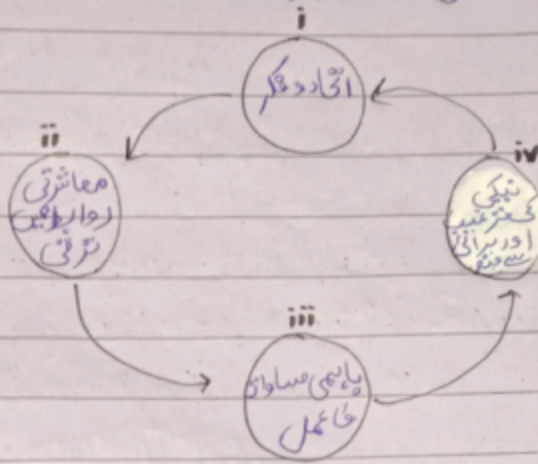 i
اتحاد و فکر
ii
معاشرتی
روابط میں
ترقی
iii
باہمی مساوات
کا عمل
iv
نیکی
کی ترغیب
اور برائی
سے منع